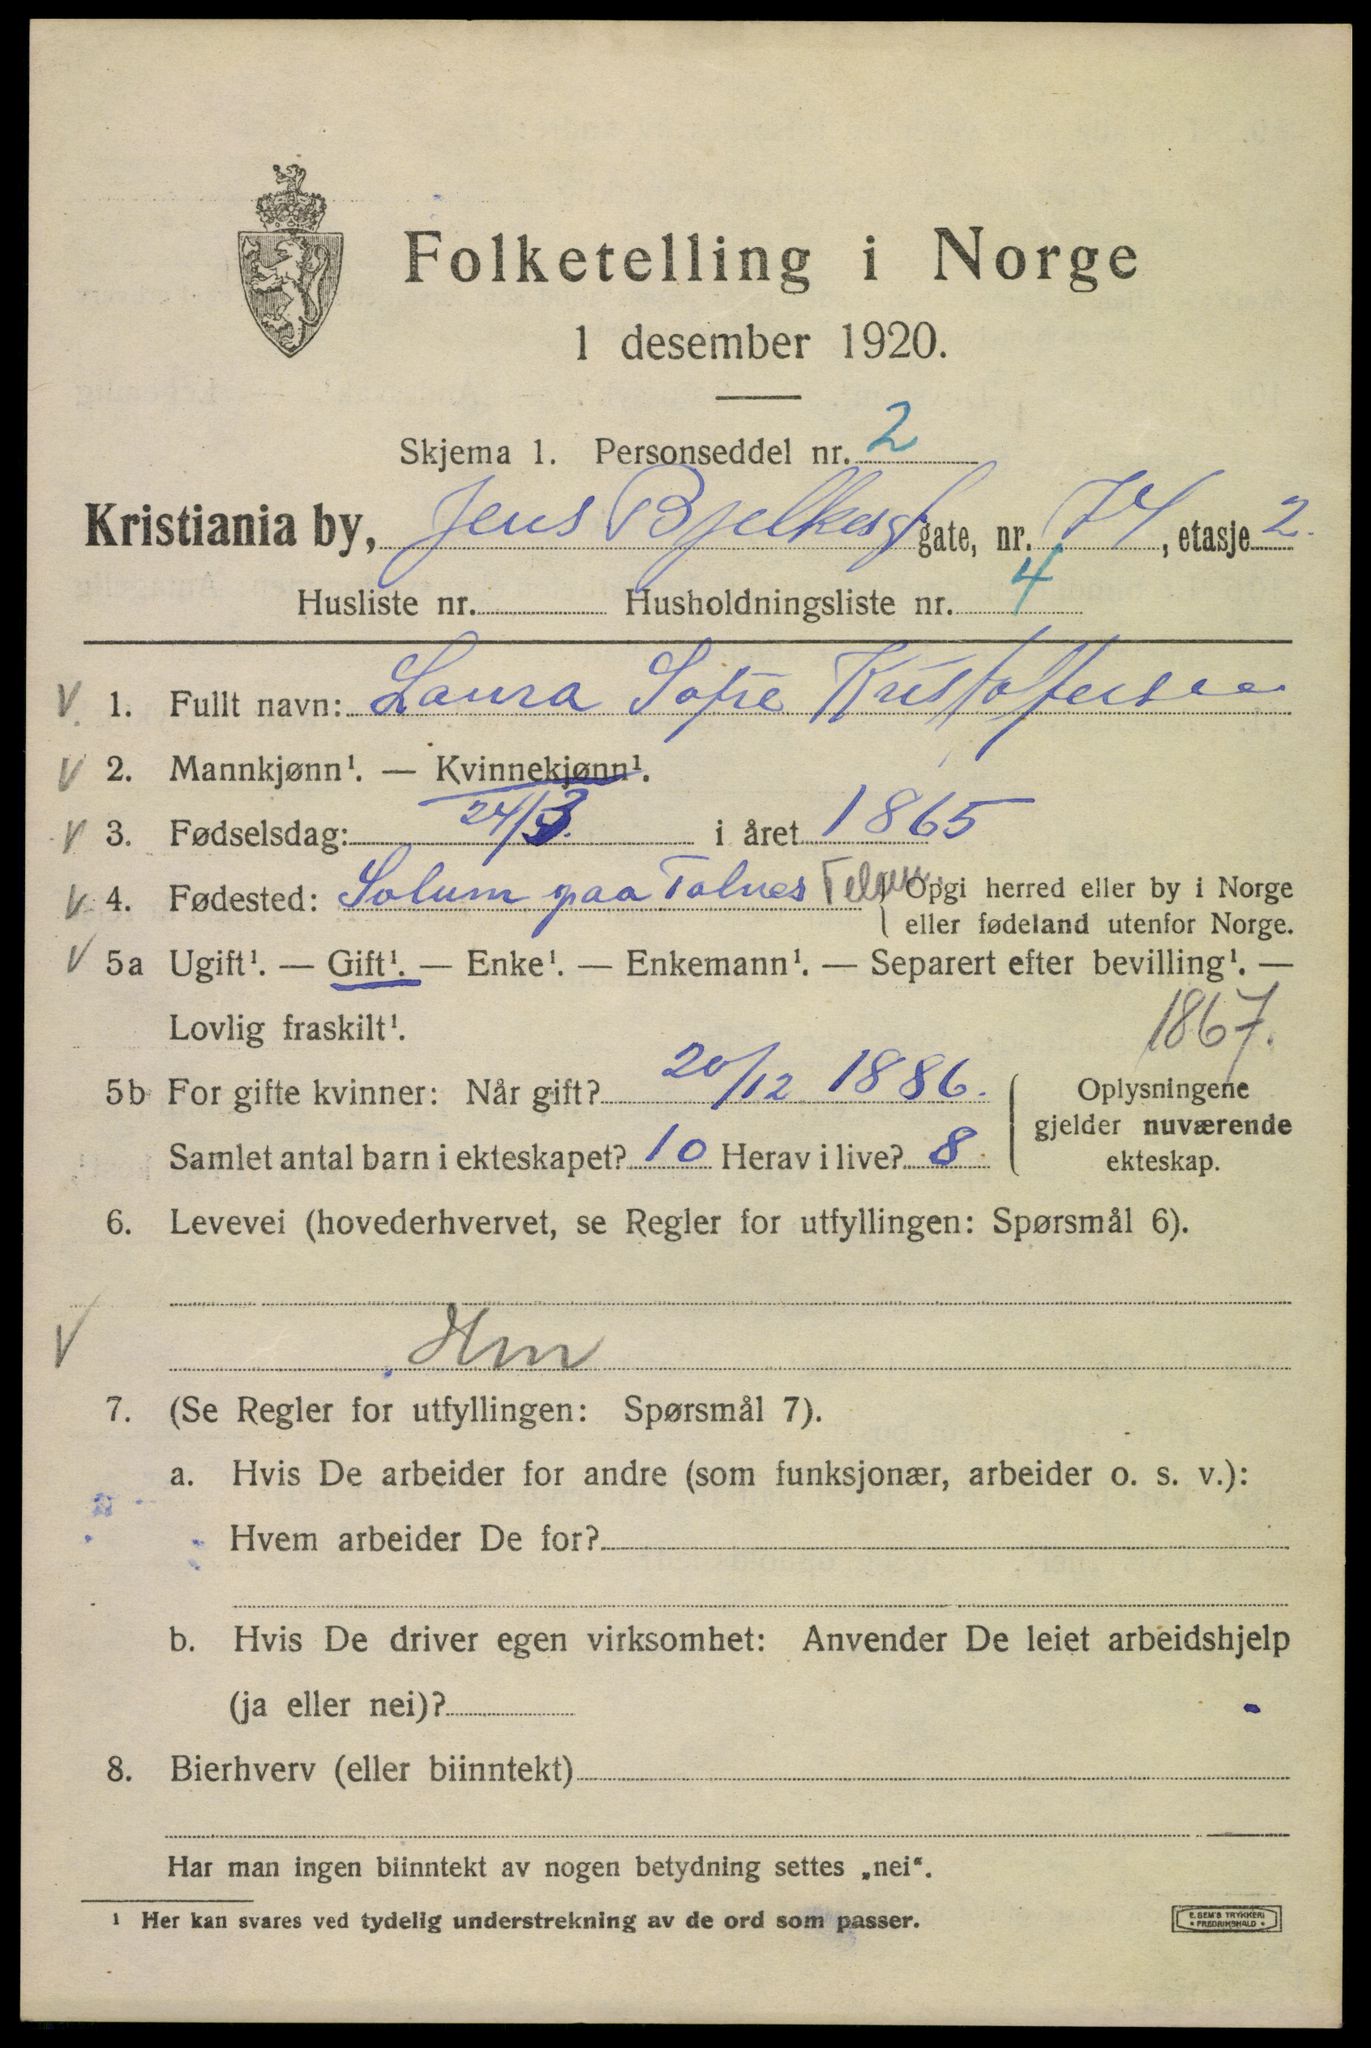 Folketelling i Norge
1 desember 1920.
Skjema 1. Personseddel nr. 2
Kristiania by, Jens Bjelkesgt gate, nr. 74, etasje 2.
Husliste nr. Husholdningsliste nr. 4
V. 1. Fullt navn: Laura Sofie Kristoffersen
V 2. Mannkjønn¹. — Kvinnekjønn¹.
V 3. Fødselsdag: 24/3. i året 1865
V 4. Fødested: Solum paa Tolnes Telem. Opgi herred eller by i Norge
eller fødeland utenfor Norge.
V 5a Ugift¹. — Gift¹. — Enke¹. — Enkemann¹. — Separert efter bevilling¹. —
Lovlig fraskilt¹. 1867.
5b For gifte kvinner: Når gift? 20/12 1886.
Samlet antal barn i ekteskapet? 10 Herav i live? 8
Oplysningene
gjelder nuværende
ekteskap.
6. Levevei (hovederhvervet, se Regler for utfyllingen: Spørsmål 6).
V Hm
7. (Se Regler for utfyllingen: Spørsmål 7).
a. Hvis De arbeider for andre (som funksjonær, arbeider o. s. v.):
Hvem arbeider De for?
b. Hvis De driver egen virksomhet: Anvender De leiet arbeidshjelp
(ja eller nei)?
8. Bierhverv (eller biinntekt)
Har man ingen biinntekt av nogen betydning settes „nei“.
¹ Her kan svares ved tydelig understrekning av de ord som passer.
E. SEM'S TRYKKERI
• FREDRIKSHALD •